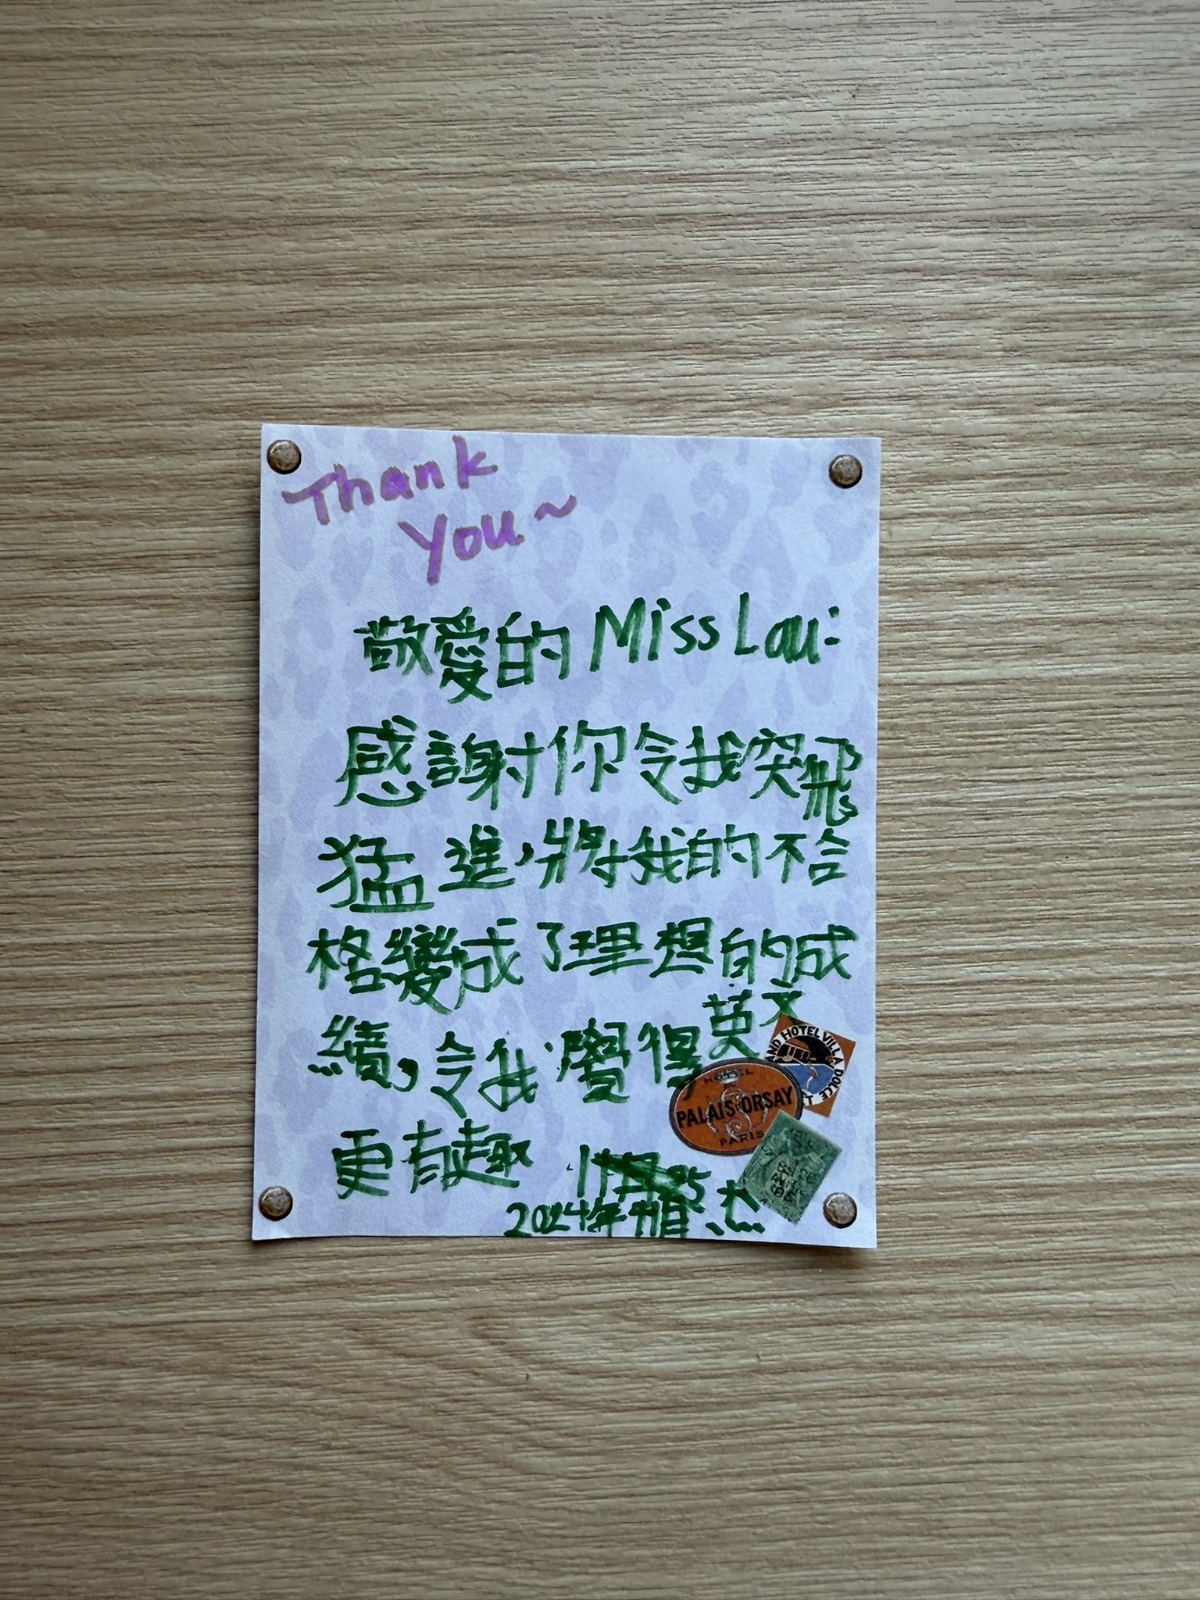 Thank
You~
敬愛的 Miss Lau:
感謝你令我突飛
猛進,將我的不合
格變成了理想的成
績,令我覺得英文
更有趣
2024年
HOTEL VILLA DOLCE
HOTEL
PALAIS·ORSAY
PARIS